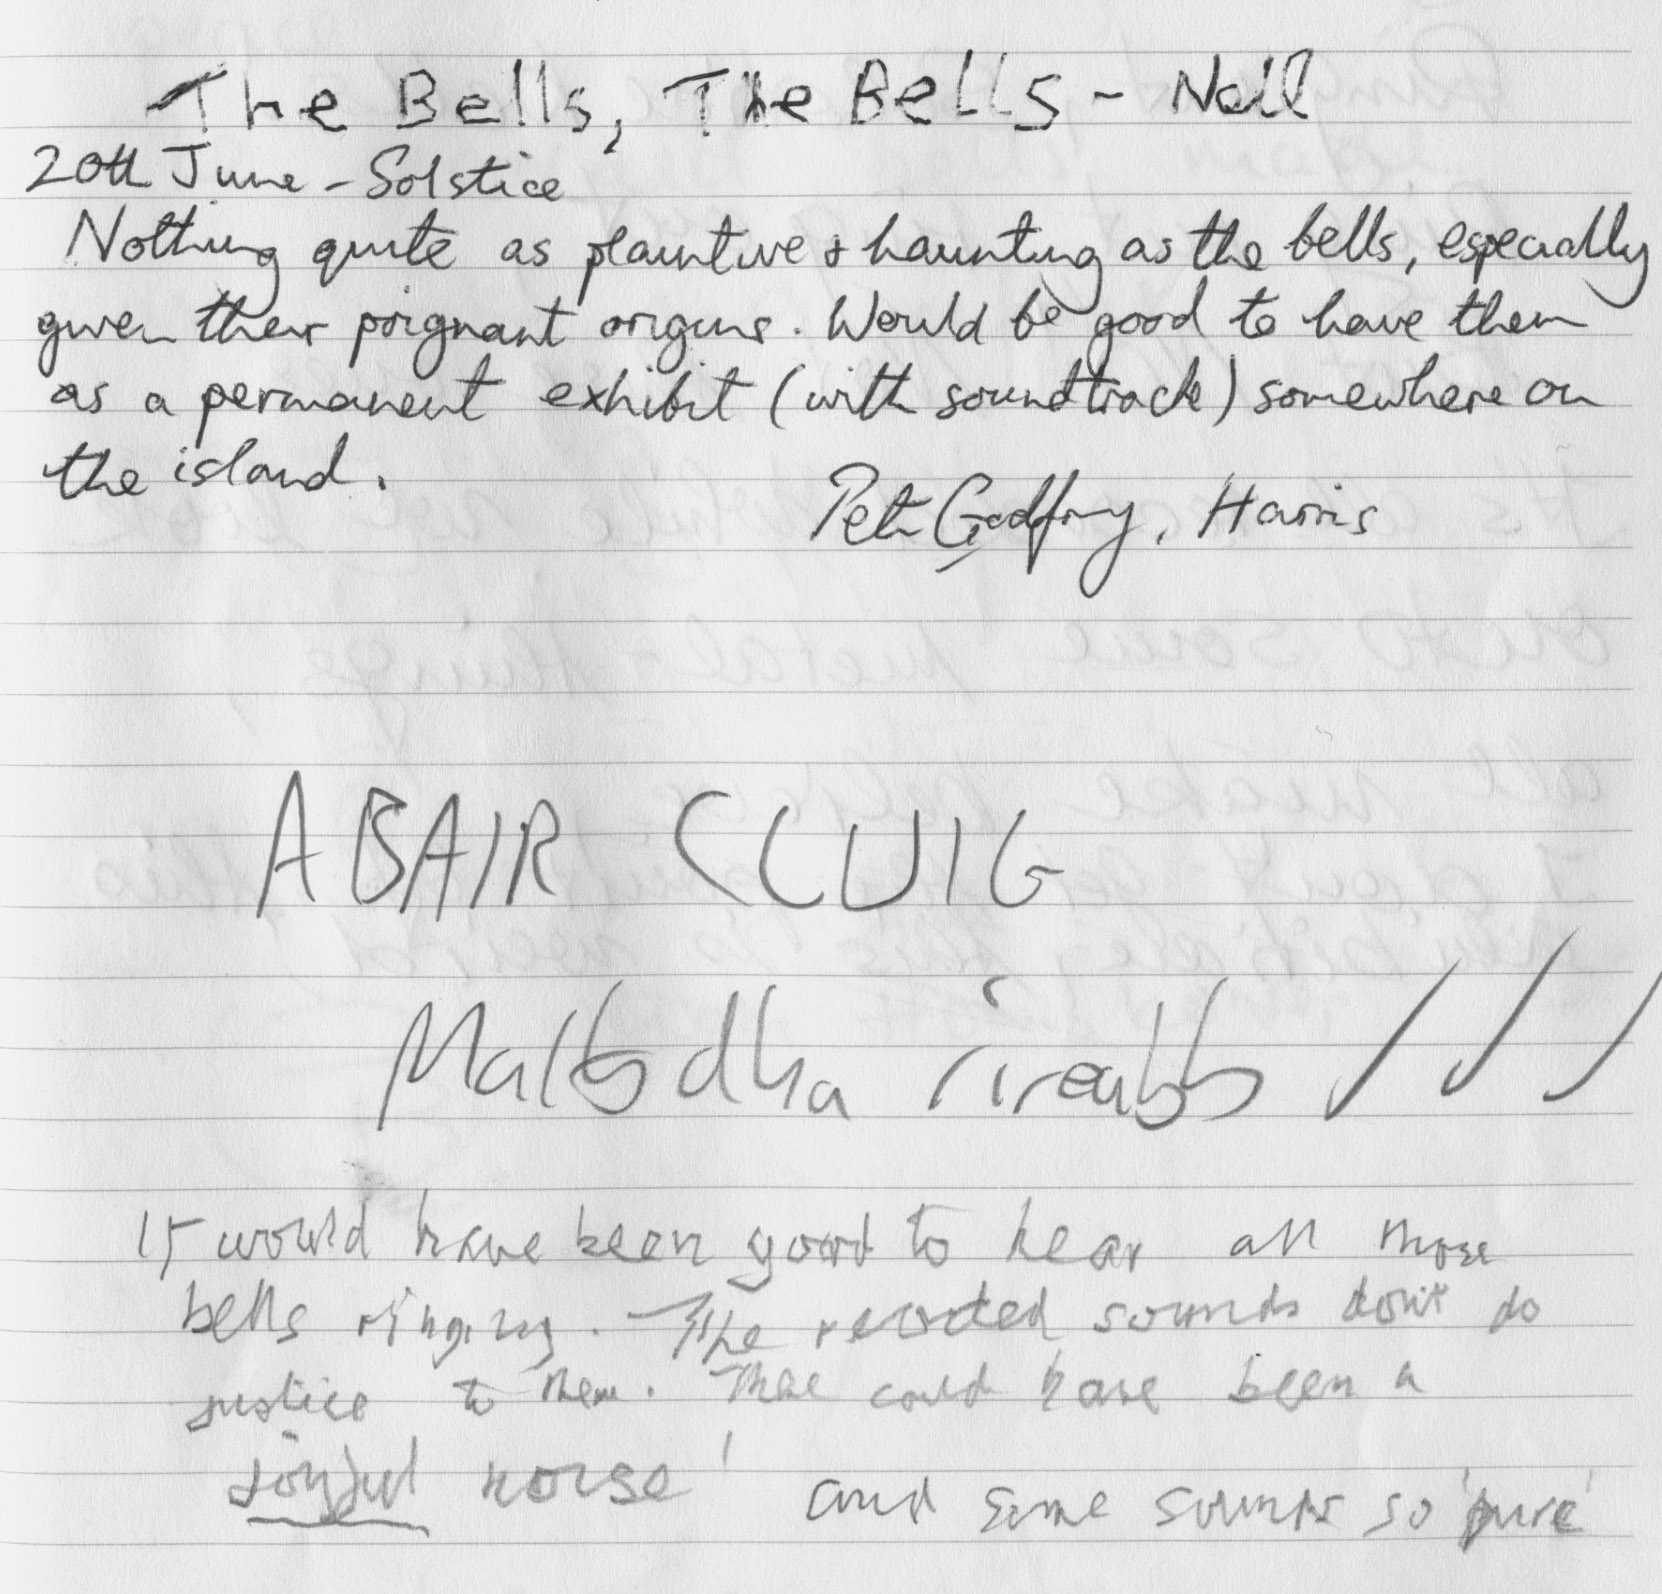 The Bells, The Bells - Nell
20th June - Solstice
Nothing quite as plaintive + haunting as the bells, especially
given their poignant origins. Would be good to have them
as a permanent exhibit (with soundtrack) somewhere on
the island.
Peter Godfrey, Harris
ABAIR CLUIG
It would have been good to hear all those
bells ringing. The recorded sounds don't do
justice to them. There could have been a
joyful noise' and some sounds so 'pure'